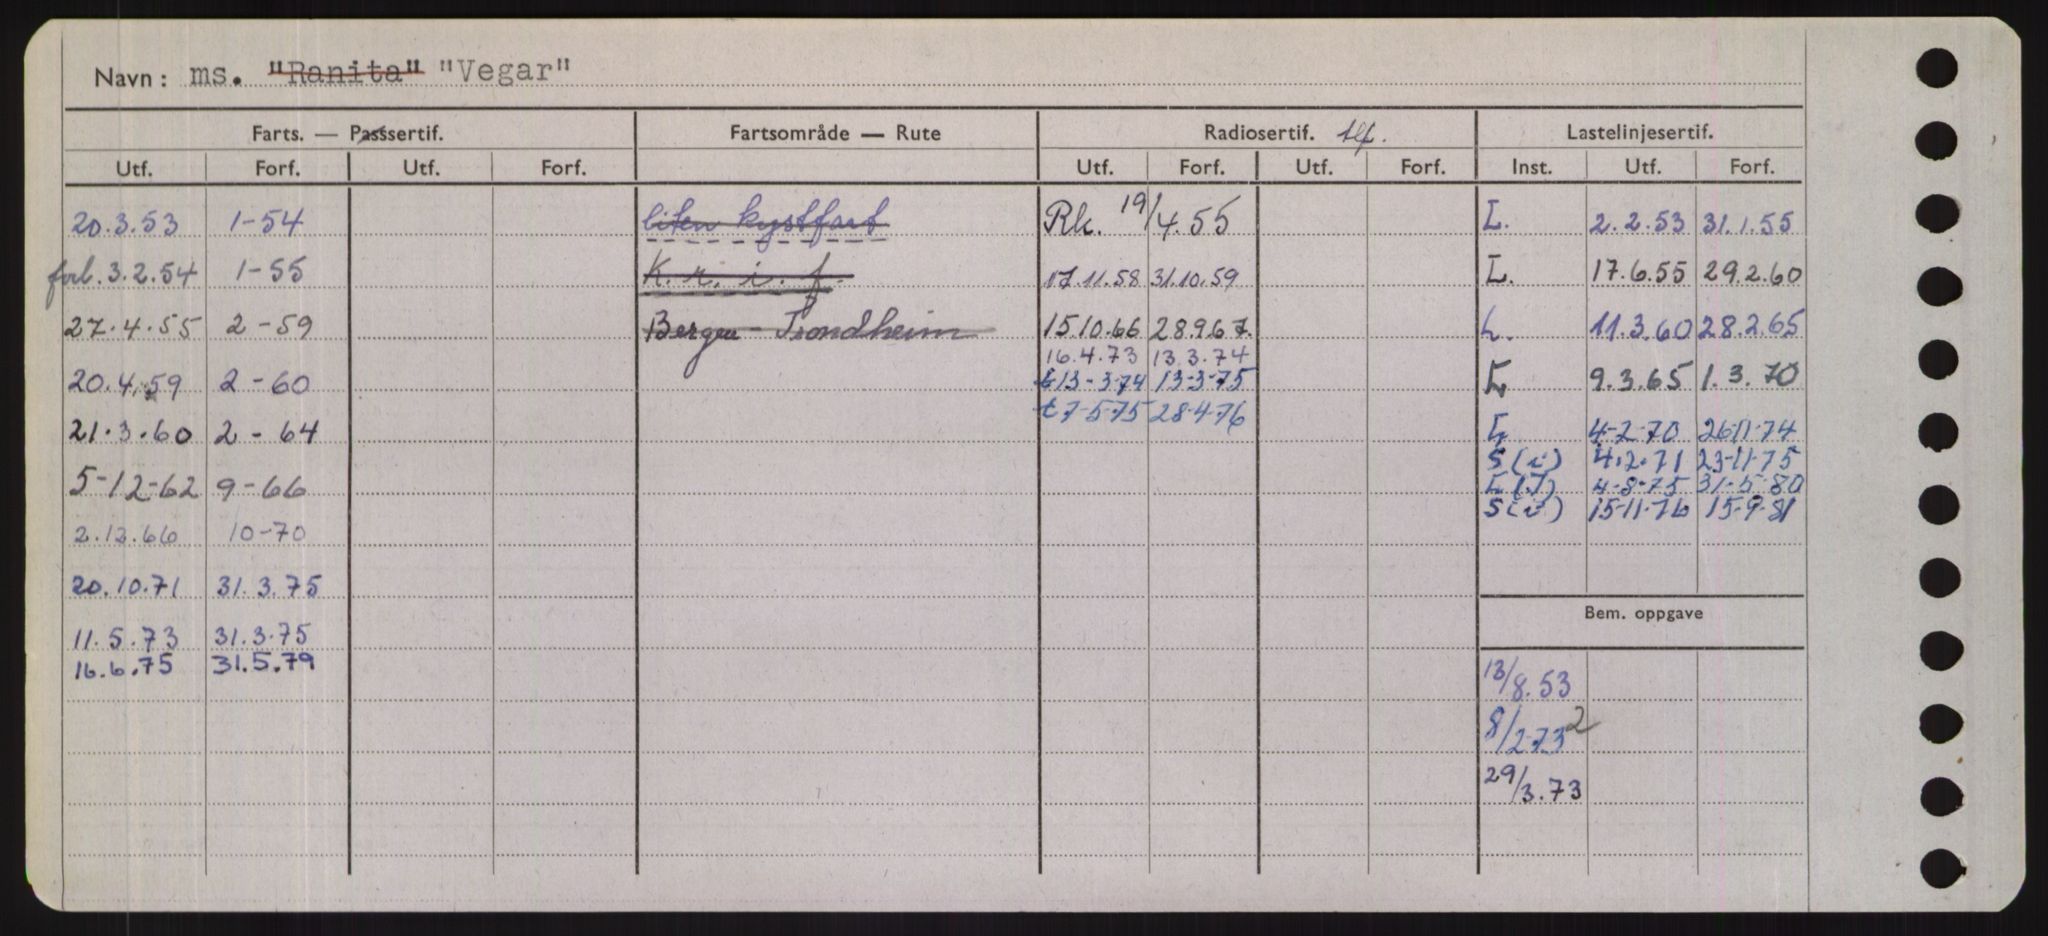 Navn: ms. "Ranita" "Vegar"
Farts. — Passsertif. Fartsområde — Rute Radiosertif. tlf. Lastelinjesertif.
Utf. Forf. Utf. Forf. Utf. Forf. Utf. Forf. Inst. Utf. Forf.
20.3.53 1-54 liten kystfart Rk. 19/4.55 L. 2.2.53 31.1.55
forl. 3.2.54 1-55 K. n. i. f. 17.11.58 31.10.59 L. 17.6.55 29.2.60
27.4.55 2-59 Bergen - Trondheim 15.10.66 28.9.67. L. 11.3.60 28.2.65
16.4.73 13.3.74
20.4.59 2-60 t 13-3-74 13-3-75 L 9.3.65 1.3.70
t 7-5-75 28-4-76
21.3.60 2-64 L 4-2-70 26-11-74
S(i) 4.2.71 23-11-75
5-12-62 9-66 L(I) 4-8-75 31-5-80
S(i) 15-11-76 15-9-81
2.12.66 10-70
20.10.71 31.3.75
Bem. oppgave
11.5.73 31.3.75
16.6.75 31.5.79
13/8.53
8/2-73 2
29/3.73